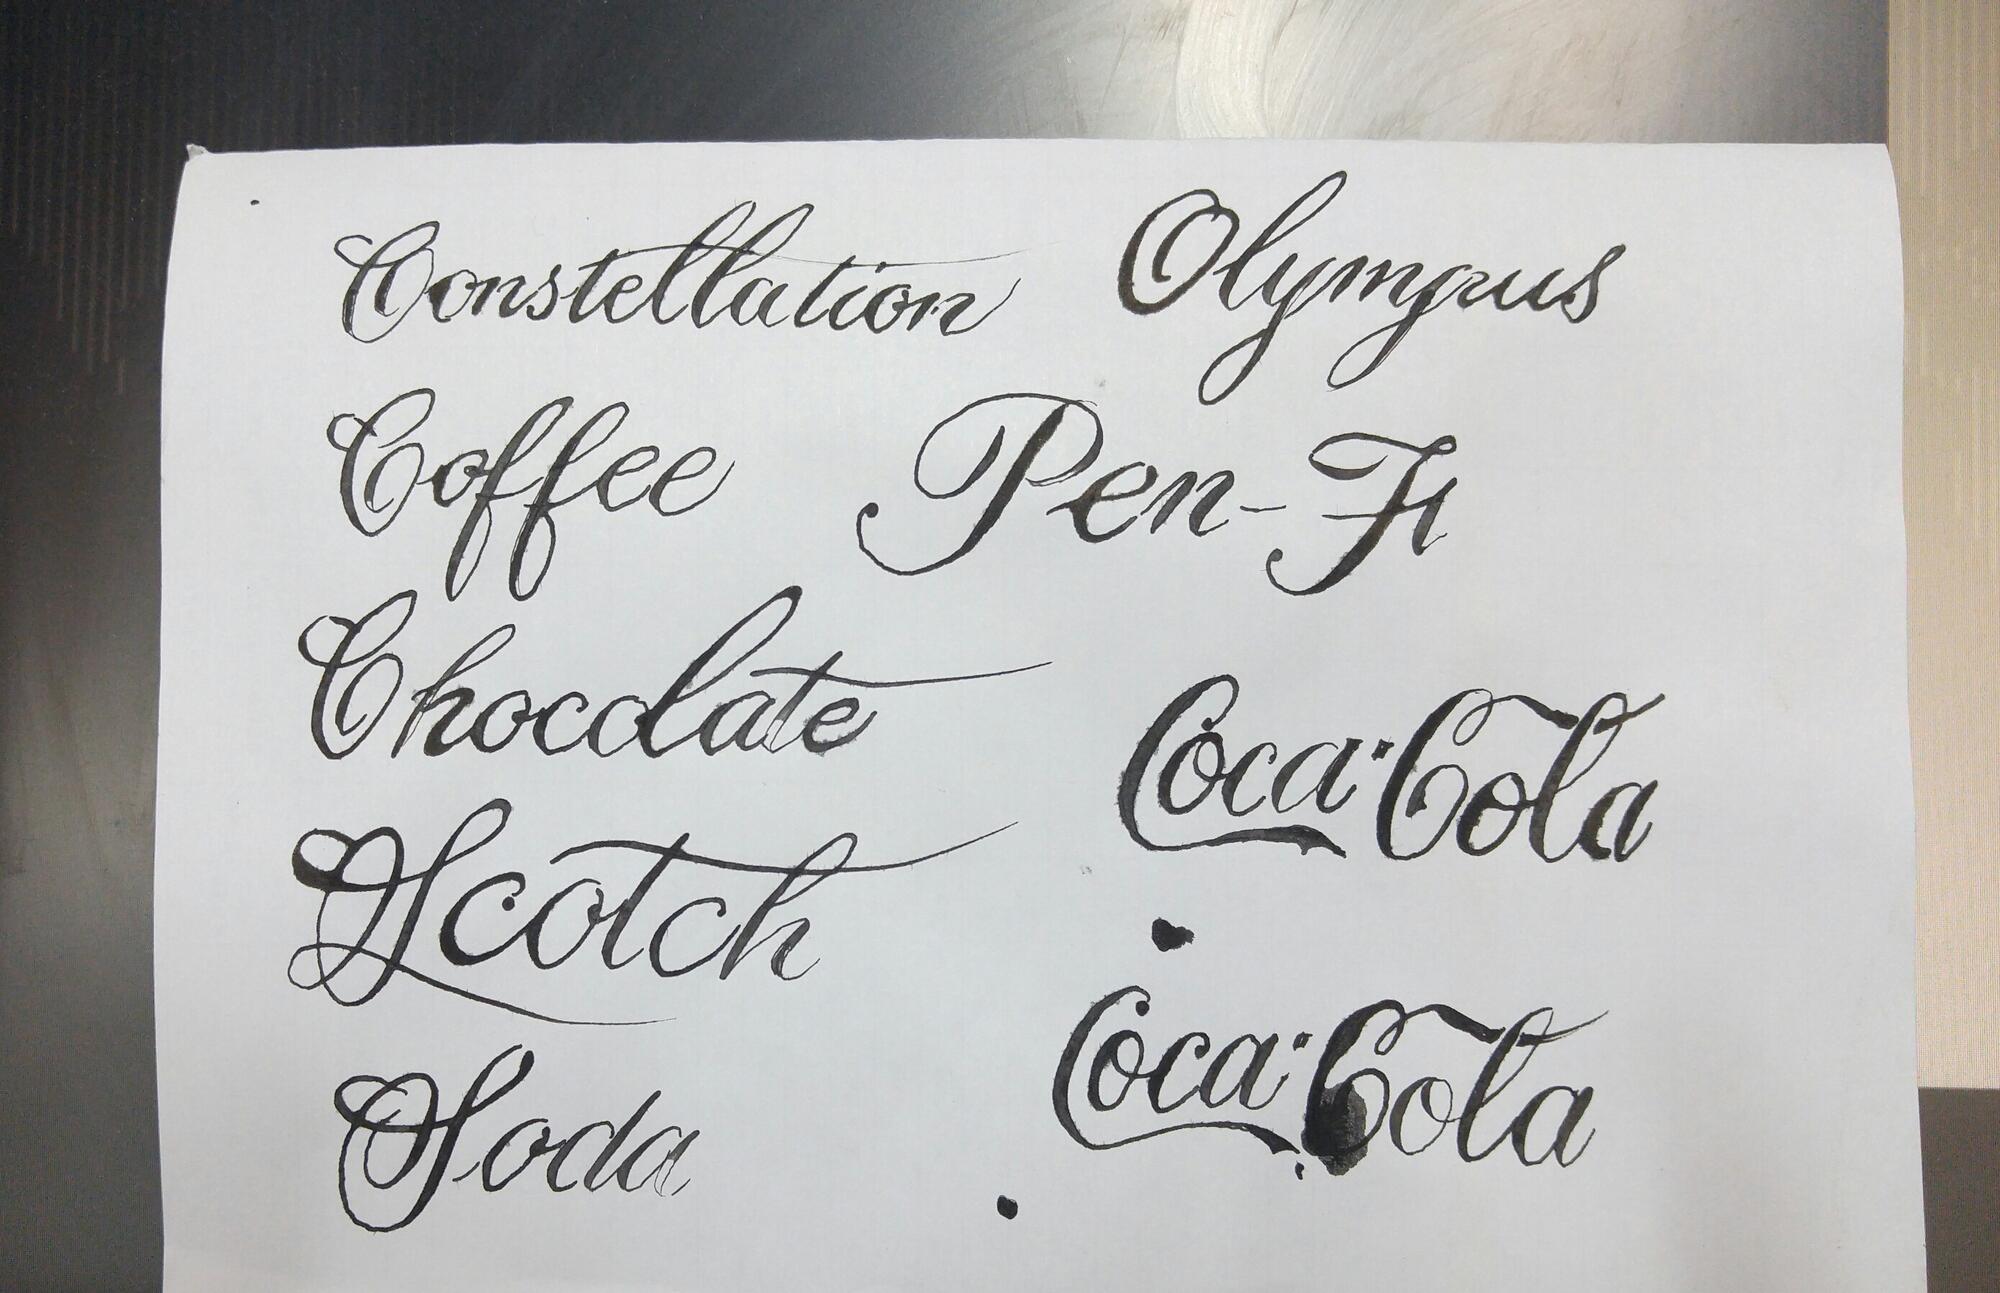 Constellation Olympus
Coffee Pen-Fi
Chocolate
Coca·Cola
Scotch
Coca·Cola
Soda